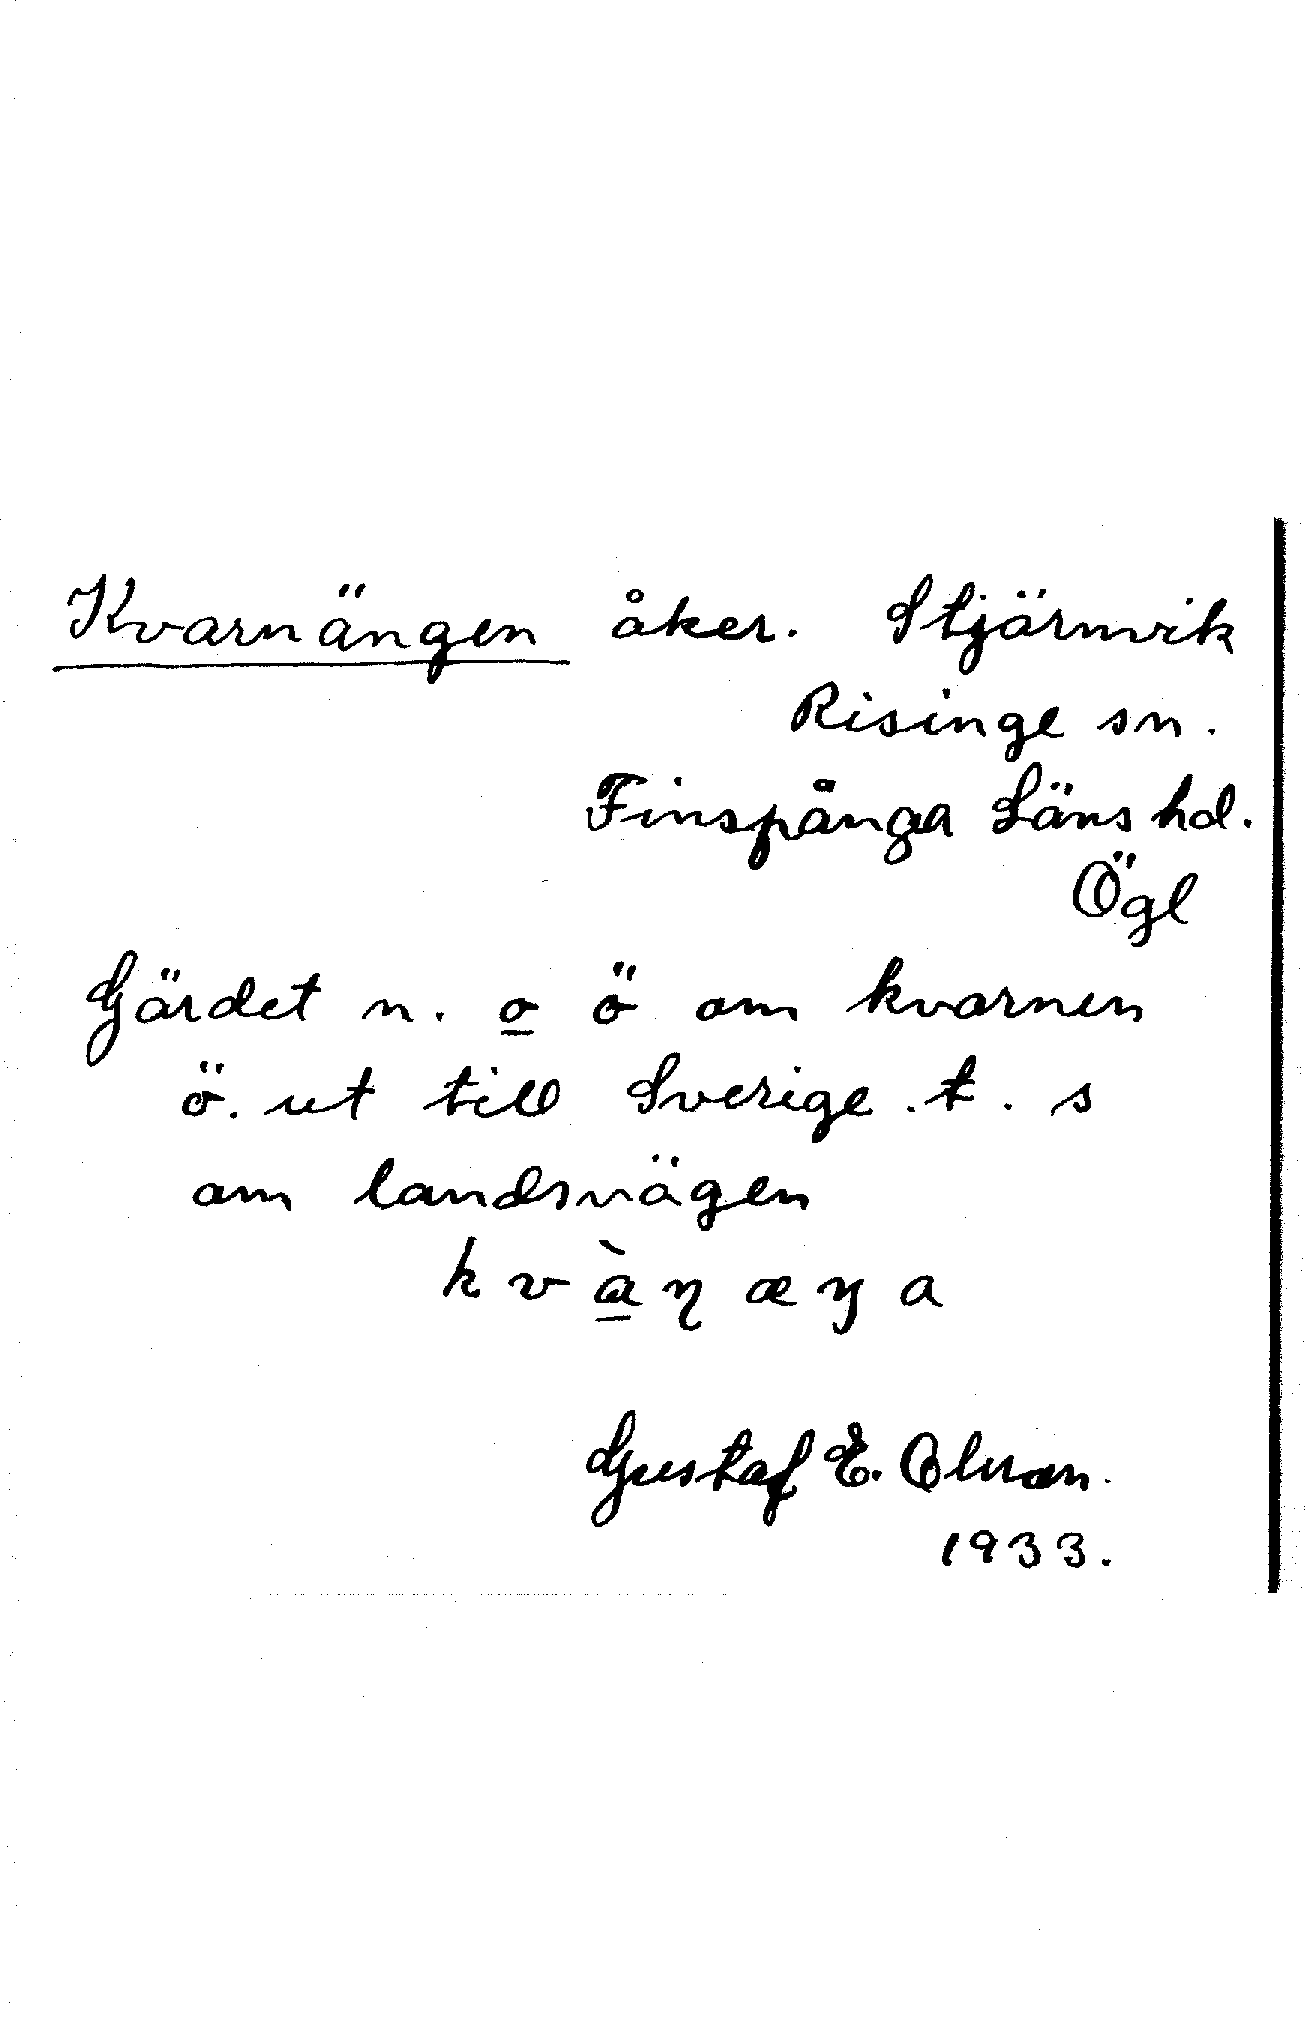 Kvarnängen åker. Stjärnvik
Risinge sn.
Finspånga Läns hd.
Ögl
Gärdet n. o ö om kvarnen
ö. ut till Sverige. t. s
om landsvägen
kvàɳæŋa
Gustaf E.
1933.